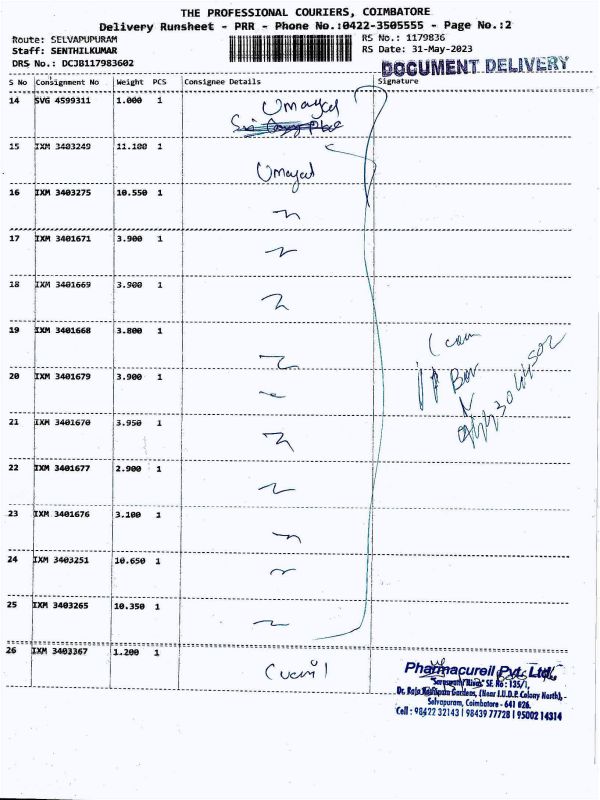 THE PROFESSIONAL COURIERS, COIMBATORE
Delivery Runsheet - PRR - Phone No.:0422-3505555 - Page No.:2
Route: SELVAPUPURAM
RS No.: 1179836
Staff: SENTHILKUMAR
RS Date: 31-May-2023
DRS No.: DCJB117983602
DOCUMENT DELIVERY
S No Consignment No Weight PCS Consignee Details Signature
14 SVG 4599311 1.000 1 Umayal
15 IXM 3403249 11.100 1 Umayal
16 IXM 3403275 10.550 1
17 IXM 3401671 3.900 1
18 IXM 3401669 3.900 1
19 IXM 3401668 3.800 1
20 IXM 3401679 3.900 1
21 IXM 3401670 3.950 1
22 IXM 3401677 2.900 1
23 IXM 3401676 3.100 1
24 IXM 3403251 10.650 1
25 IXM 3403265 10.350 1
26 IXM 3403367 1.200 1
Pharmacureil Pvt. Ltd.
SF. No : 135/1,
Gardens, (Near I.U.D.P. Colony North),
Selvapuram, Coimbatore - 641 026.
Cell : 98422 32143 | 98439 77728 | 95002 14314